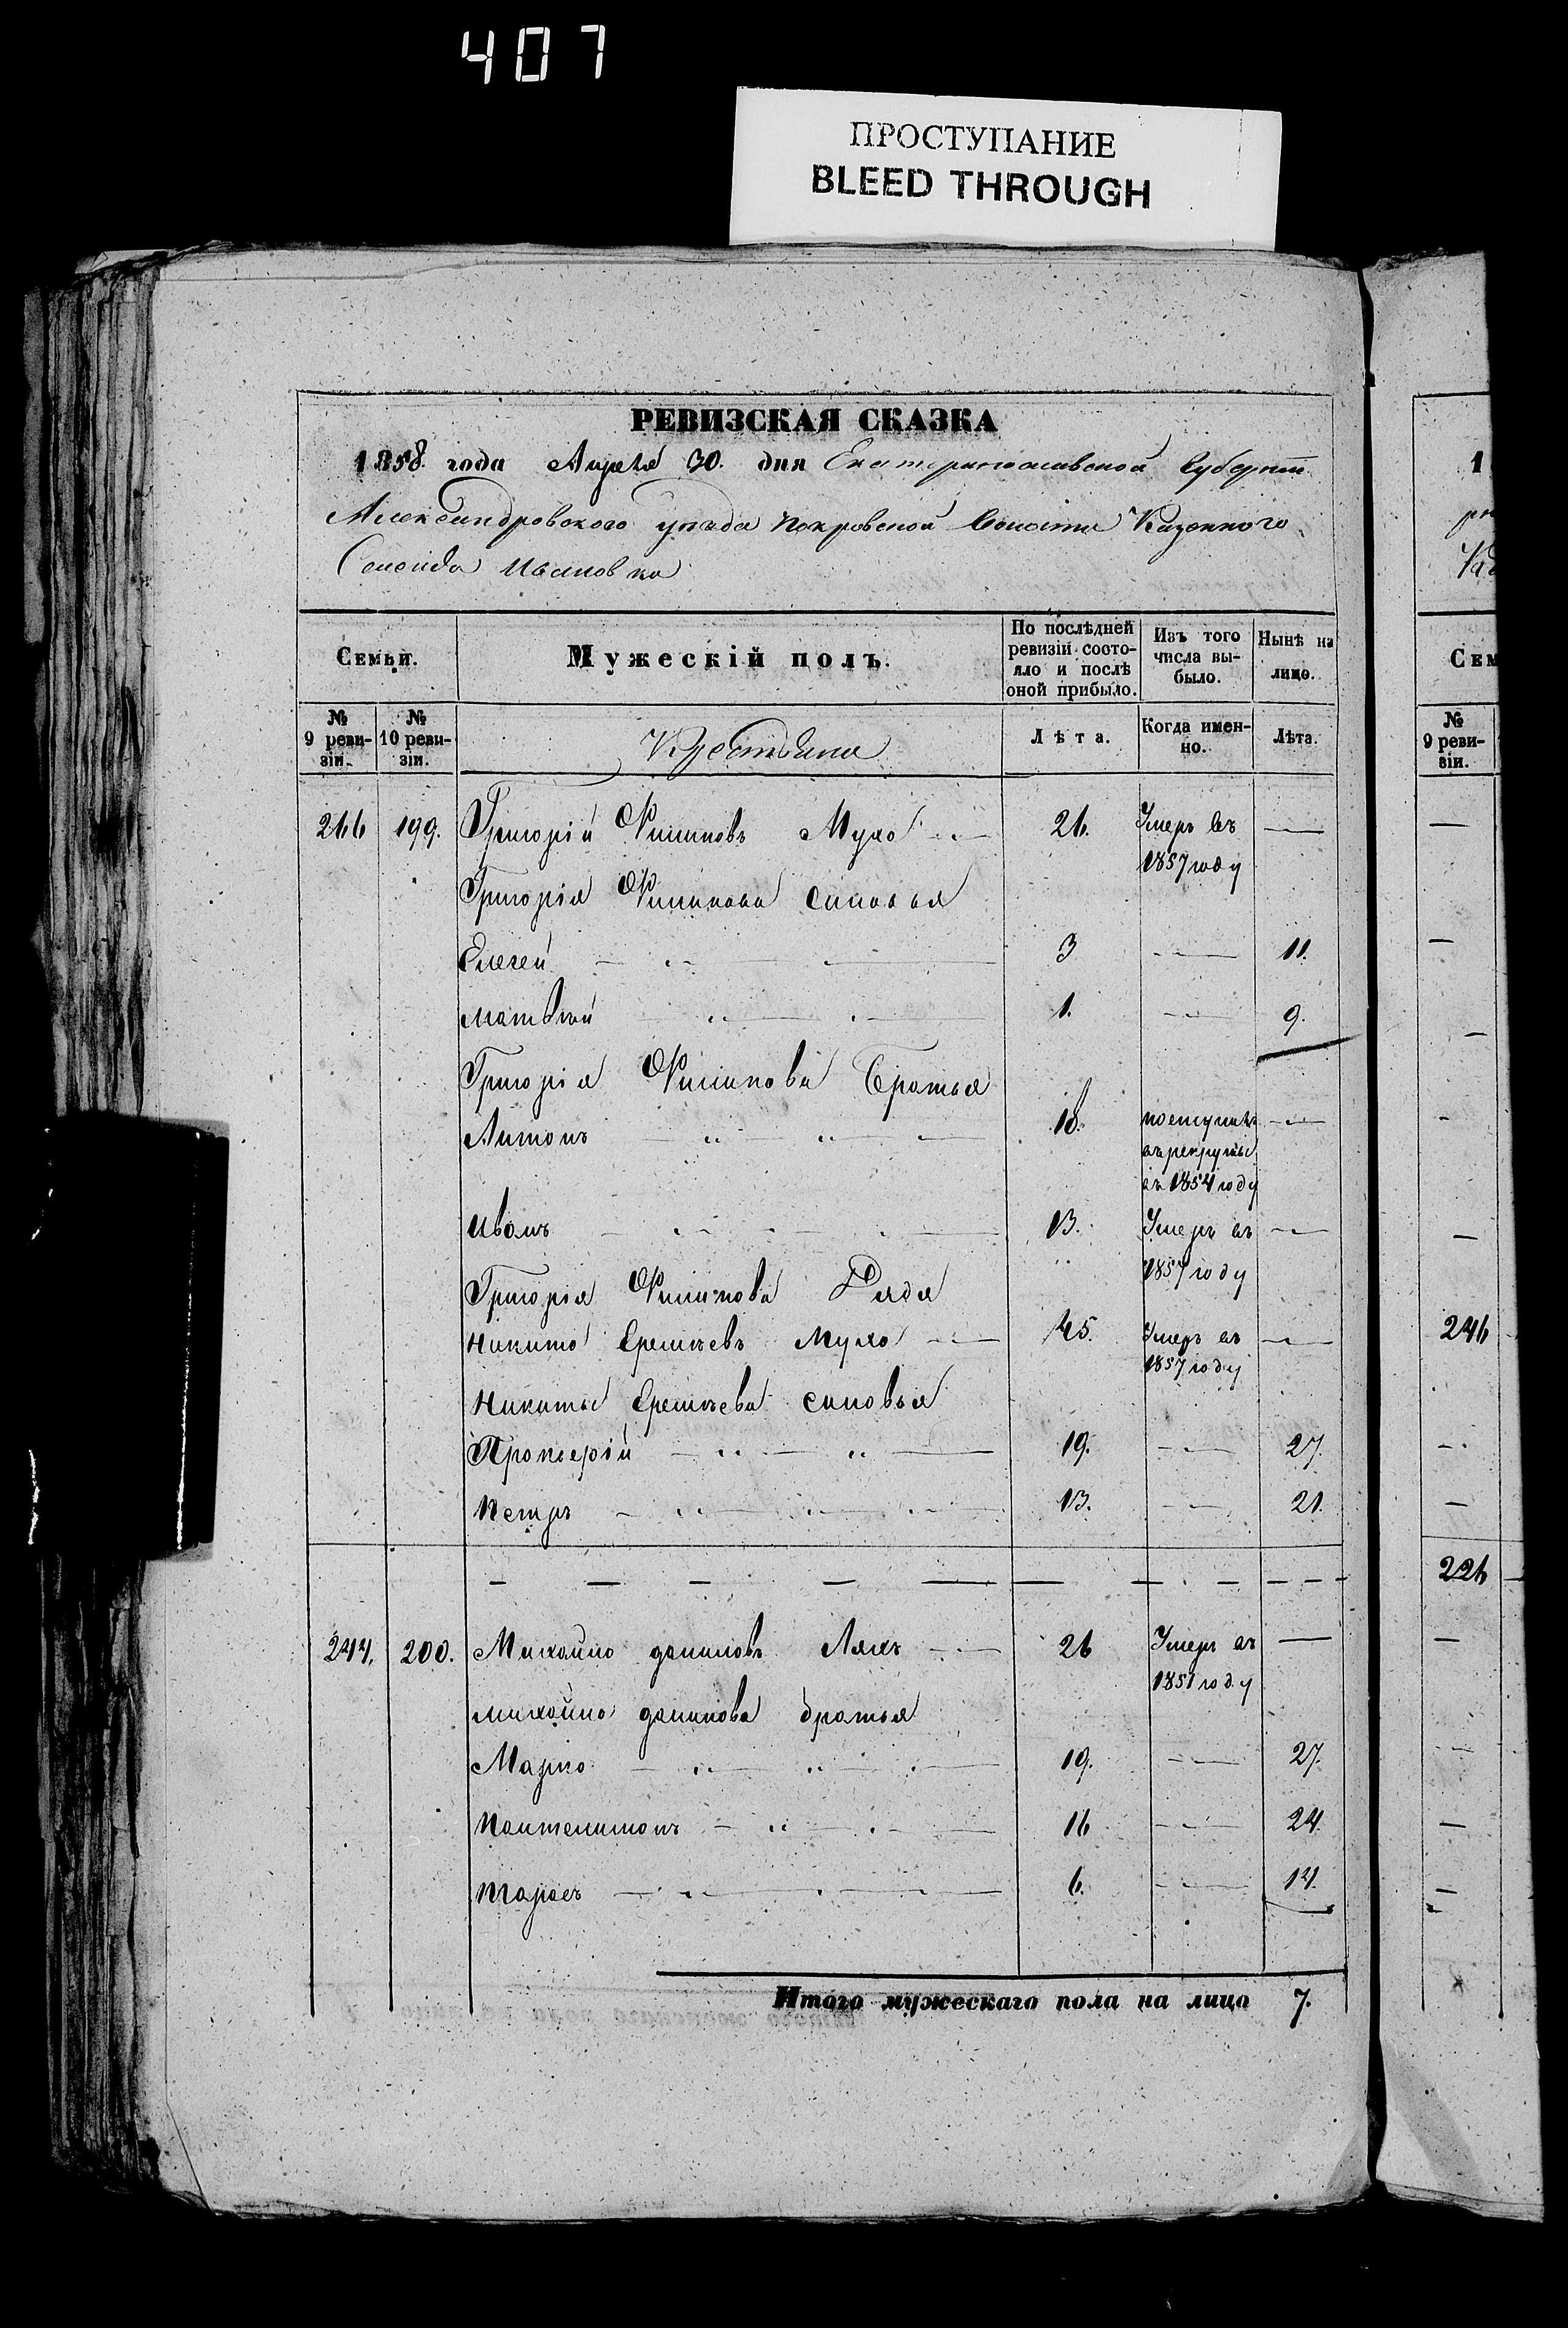 407
ПРОСТУПАНИЕ
BLEED THROUGH
РЕВИЗСКАЯ СКАЗКА
1858 года Апреля 30. дня Екатеринославской Губернiи
Александровского уезда Покровской Волости Казенного
Селенiя Ивановка
Семьи. Мужескій полъ. По послѣдней ревизіи состояло и послѣ оной прибыло. Изъ того числа выбыло. Нынѣ на лицо.
№ 9 ревизіи. № 10 ревизіи. Крестьяне Лѣта. Когда именно. Лѣта.
266 199. Григорій Филиповъ Мухо 26. Умеръ въ
1857 году
Григорія Филипова синовья
Елегей 3 11.
Матвѣй 1. 9.
Григорія Филипова Братья
Антонъ 18. поступилъ
въ рекруты
въ 1854 году
Иванъ 13. Умеръ въ
1857 году
Григорія Филипова Дядя
Никита Еремѣевъ Мухо 45. Умеръ въ
1857 году
Никиты Еремѣева синовья
Прокофій 19. 27.
Петръ 13. 21.
244. 200. Михайло даниловъ Ляхъ 26 Умеръ въ
1851 году
михайло данилова братья
Марко 19. 27.
Пантелимонъ 16 24.
Тарасъ 6. 14.
Итого мужескаго пола на лицо 7.
1
Сем
№
9 реви-
зіи.
246
226